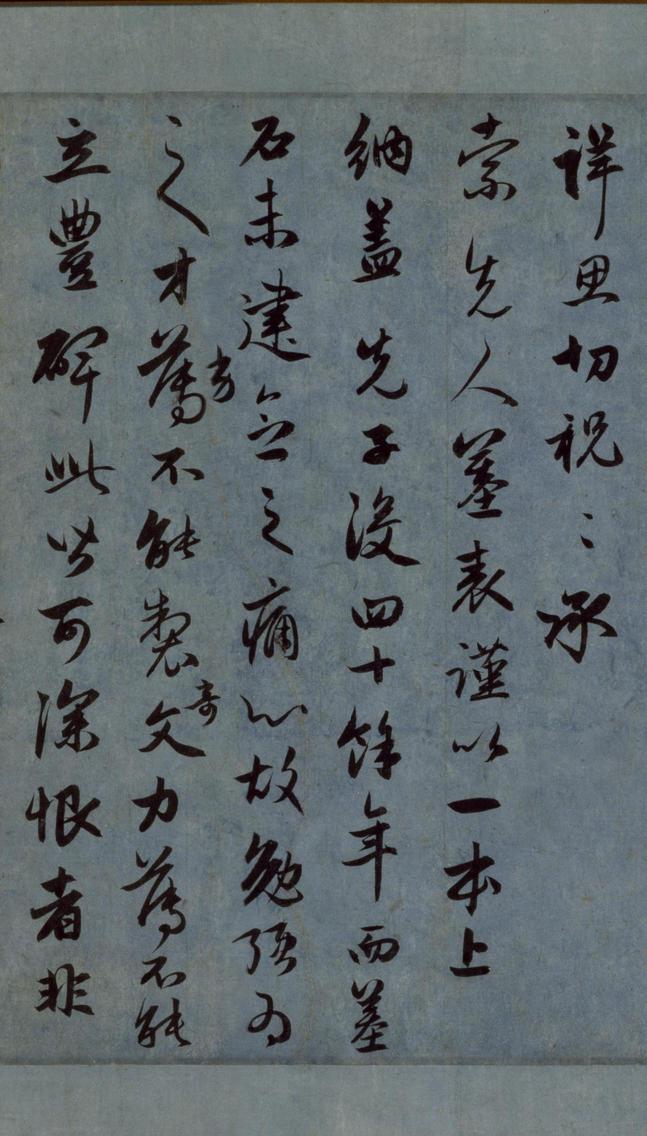 詳思切祝〻承
索先人墓表謹以一本上
納盖先子沒四十餘年而墓
石未建念之痛心故勉强為
之才薄劣不能製奇文力薄不能
立豐碑此皆可深恨者非